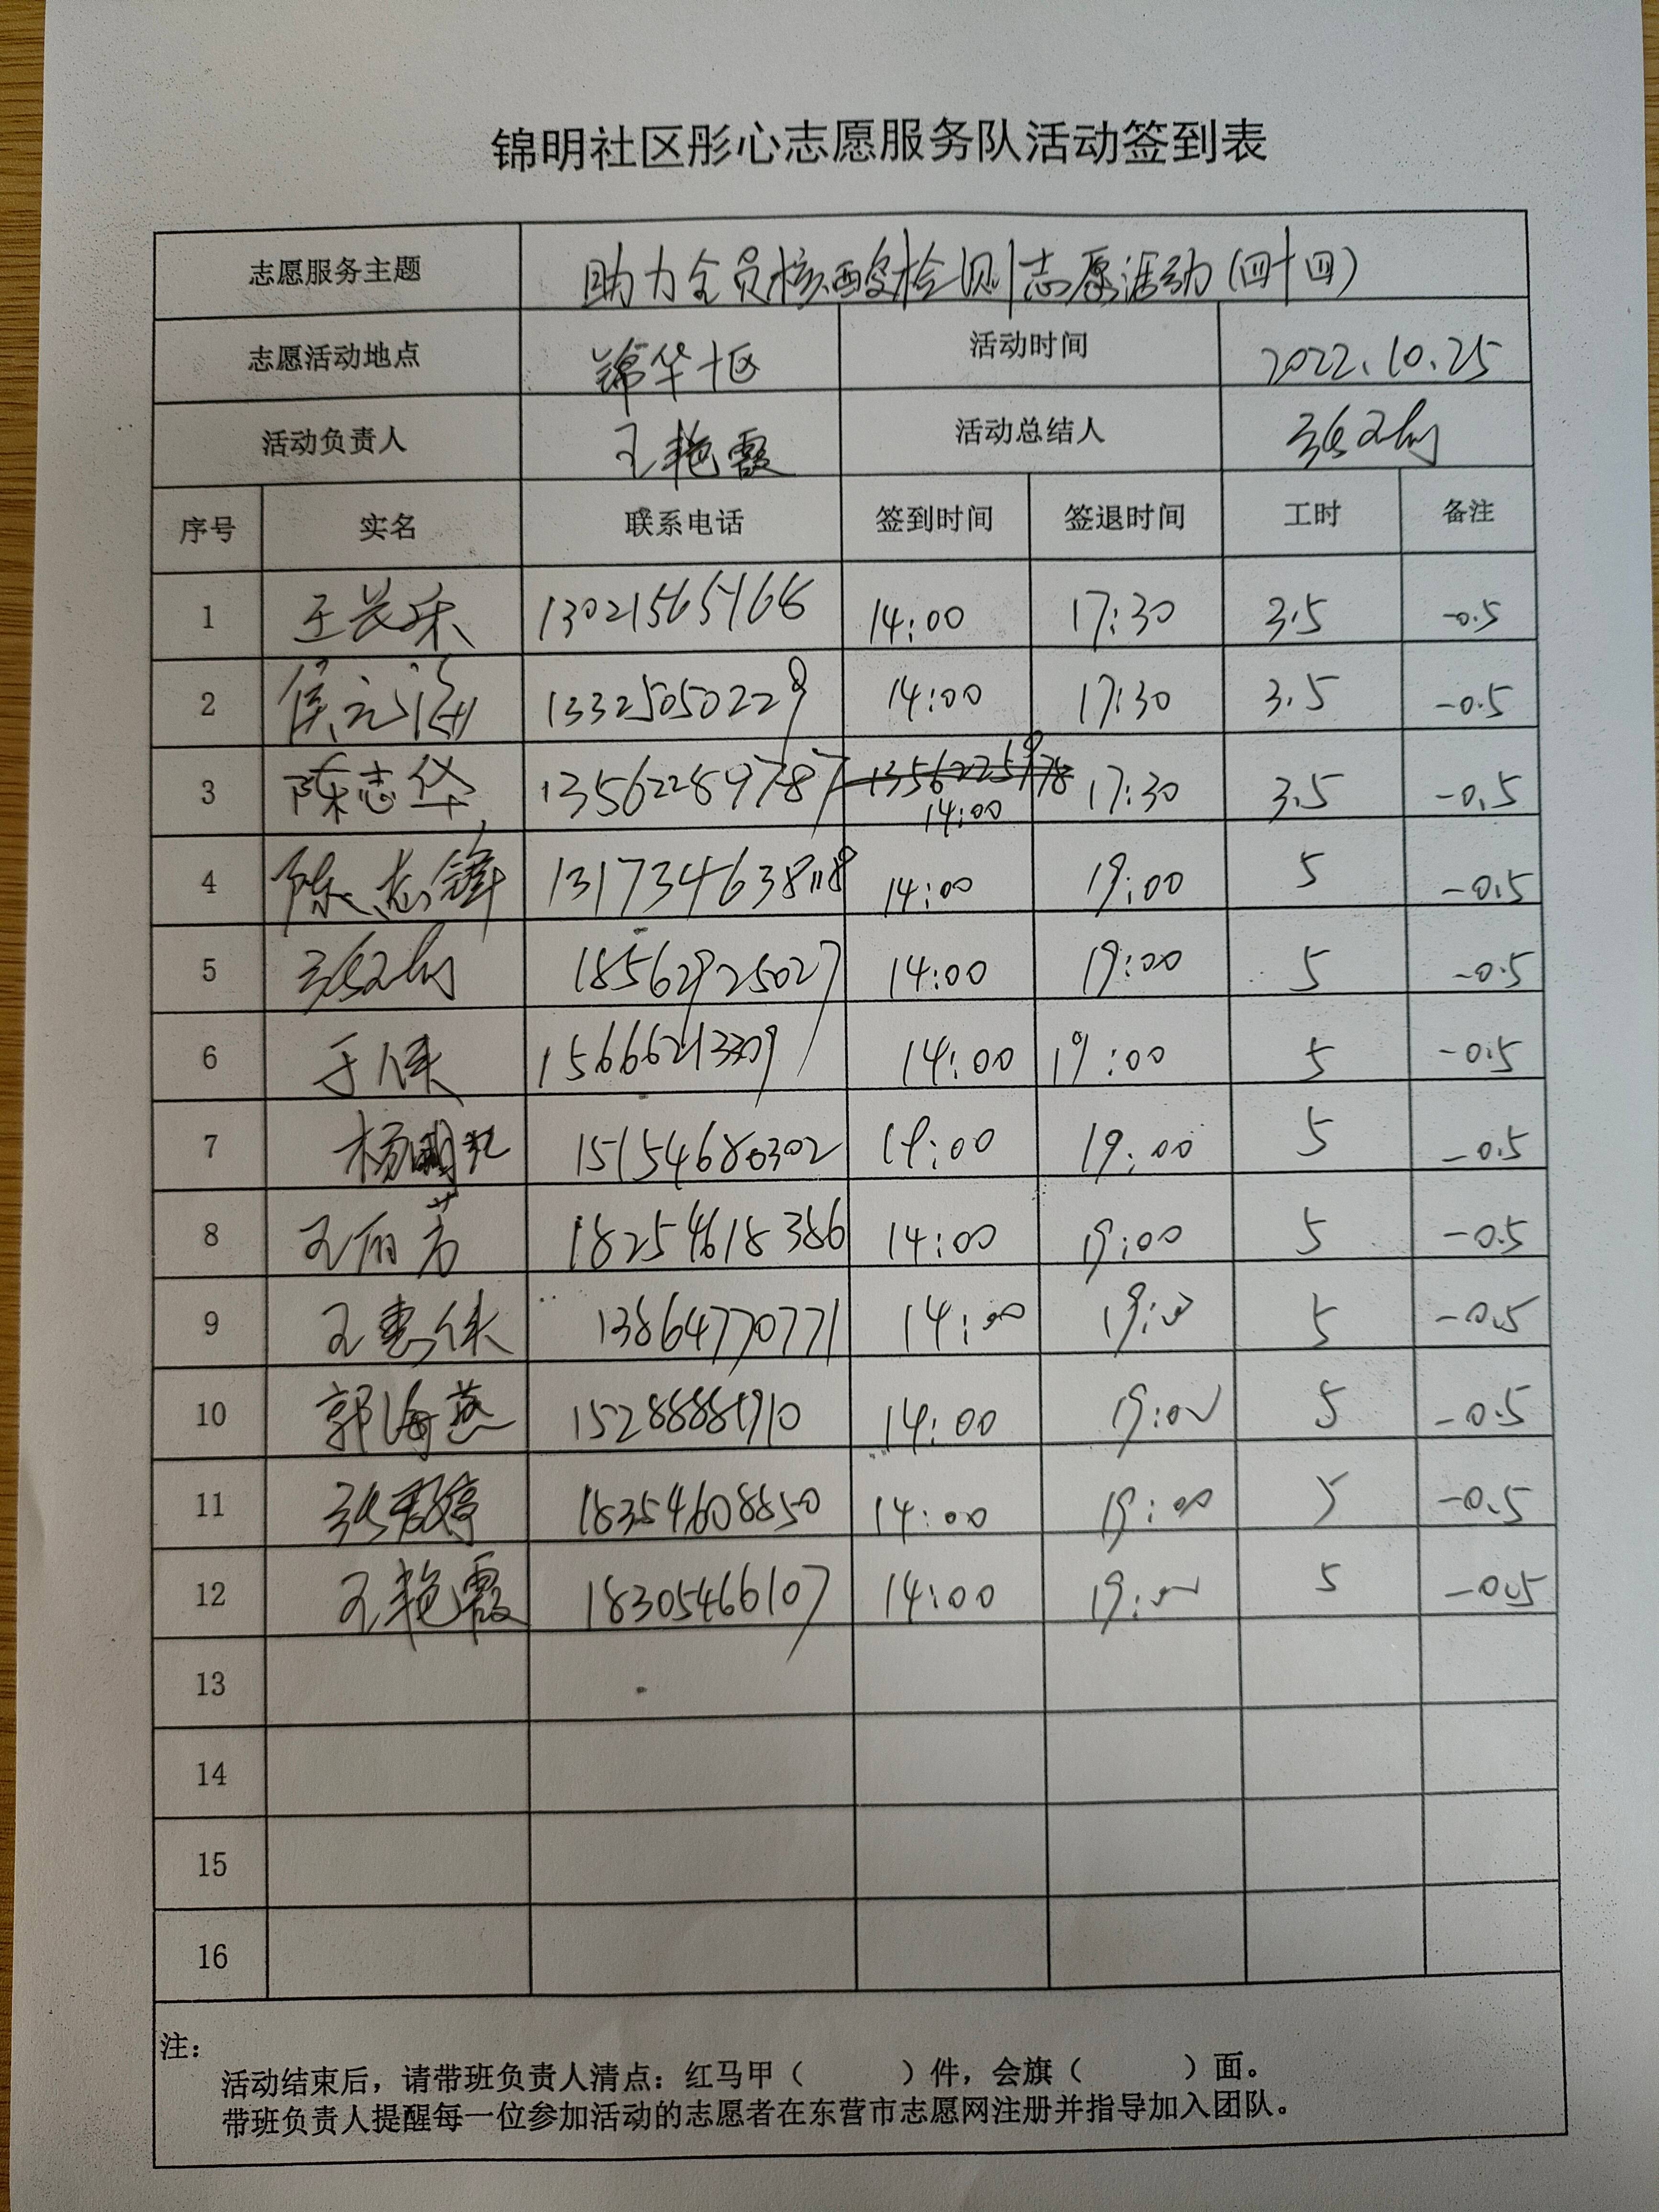 锦明社区彤心志愿服务队活动签到表
志愿服务主题 助力全员核酸检测志愿活动(四十四)
志愿活动地点 锦华十区 活动时间 2022.10.25
活动负责人 王艳霞 活动总结人
序号 实名 联系电话 签到时间 签退时间 工时 备注
1 14:00 17:30 3.5 -0.5
2 13325050229 14:00 17:30 3.5 -0.5
3 陈志华 13562289787 14:00 17:30 3.5 -0.5
4 陈志锋 14:00 19:00 5 -0.5
5 18562925027 14:00 19:00 5 -0.5
6 15666213309 14:00 19:00 5 -0.5
7 15154680302 14:00 19:00 5 -0.5
8 18254618386 14:00 19:00 5 -0.5
9 13864770771 14:00 19:00 5 -0.5
10 郭海燕 14:00 19:00 5 -0.5
11 18354608850 14:00 19:00 5 -0.5
12 王艳霞 18305466107 14:00 19:00 5 -0.5
13
14
15
16
注:
活动结束后，请带班负责人清点：红马甲（ ）件，会旗（ ）面。
带班负责人提醒每一位参加活动的志愿者在东营市志愿网注册并指导加入团队。